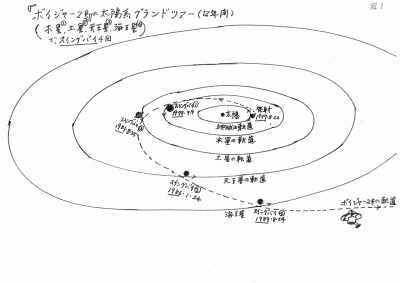 図1
『ボイジャー2号の太陽系グランドツアー(12年間)
(木星①、土星②、天王星③、海王星④
で、スイングバイ4回
スイングバイ①
1979.7.9
太陽
発射
1977.8.20
地球の軌道
木星の軌道
土星の軌道
天王星の軌道
スイングバイ②
1981.8.25
スイングバイ③
1986.1.24
海王星
スイングバイ④
1989.8.24
ボイジャー2号の軌道